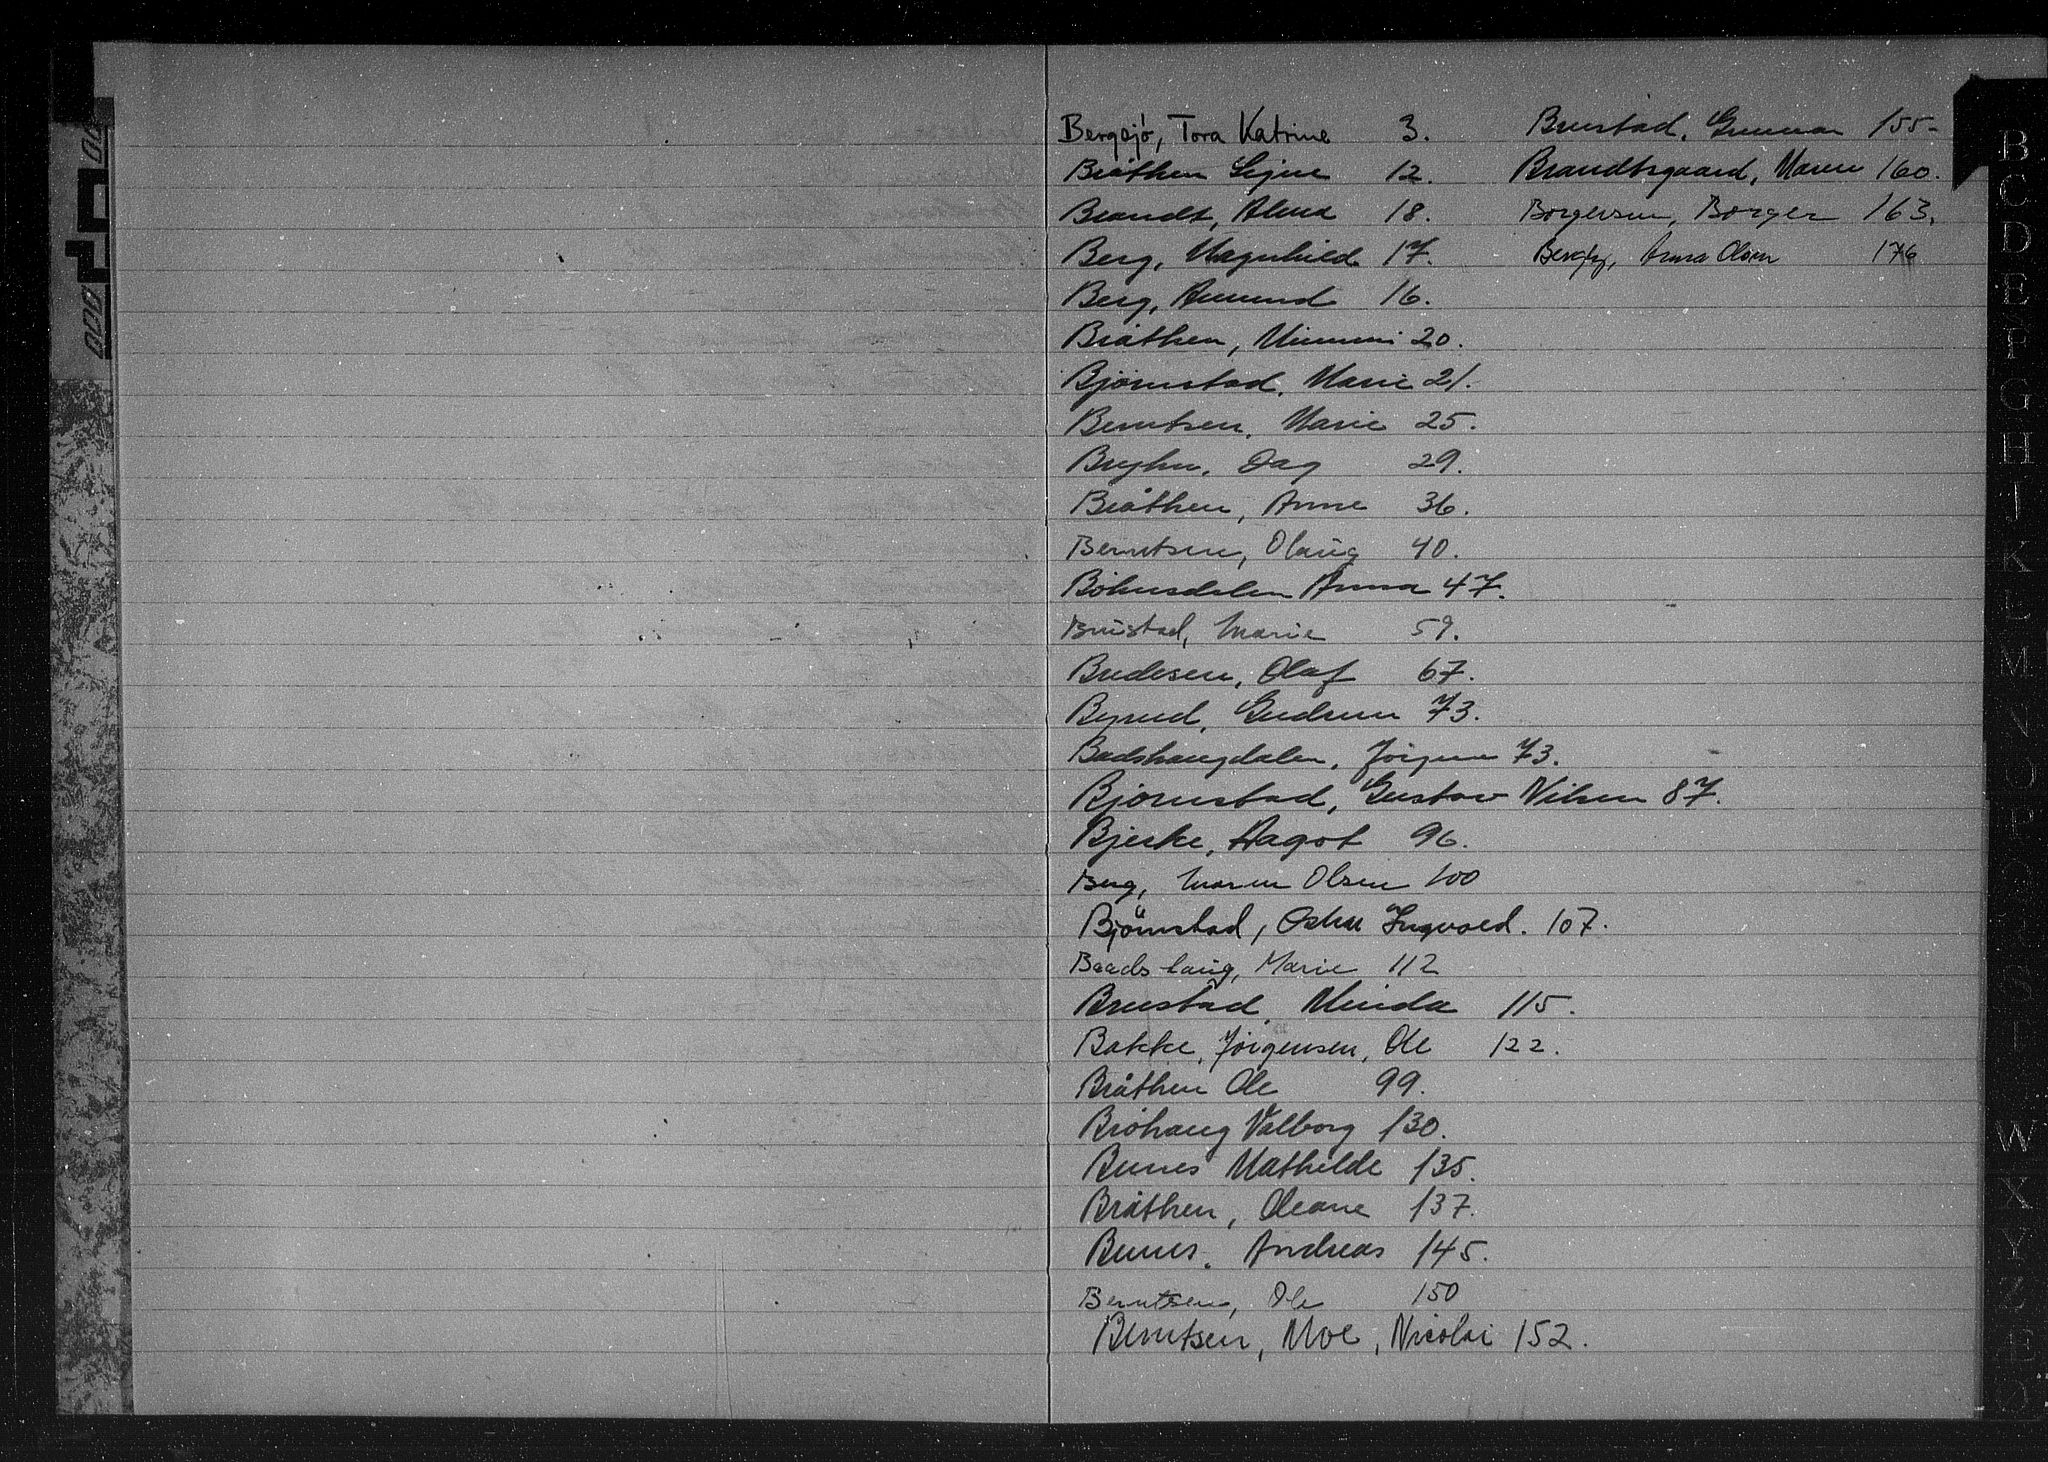 Bergsjø, Tora Katrine 3.
Bråthen Signe 12.
Brandt, Alma 18.
Berg, Magnhild 17.
Berg, Amund 16.
Bråthen, Mimmi 20.
Bjørnstad, Marie 21.
Berntsen, Marie 25.
Bryhn, Dag 29.
Bråthen, Anne 36.
Berntsen, Olaug 40.
Böhnsdalen Anna 47.
Brustad, Marie 59.
Budesen, Olaf 67.
Byrud, Gudrun 73.
Badshaugdalen, Jörgen 73.
Bjørnstad, Gustav Nilsen 87.
Bjerke, Aagot 96.
Berg, Maren Olsen 100
Bjørnstad, Oskar Ingvald. 107.
Baadshaug, Marie 112
Brustad, Minda 115.
Bakke, Jörgensen, Ole 122.
Bråthen Ole 99.
Bröhaug Valborg 130.
Bunes Mathilde 135.
Bråthen, Oleane 137.
Bunes, Andreas 145.
Berntsen, Ole 150
Berntsen, Moe, Nicolai 152.
Brustad, Gunnar 155-
Brandtsgaard, Maren 160.
Borgersen, Borger 163.
Anna Olsen 176
B
C
D
E
F
G
H
I
J
K
L
M
N
O
P
W
X
Y
Z